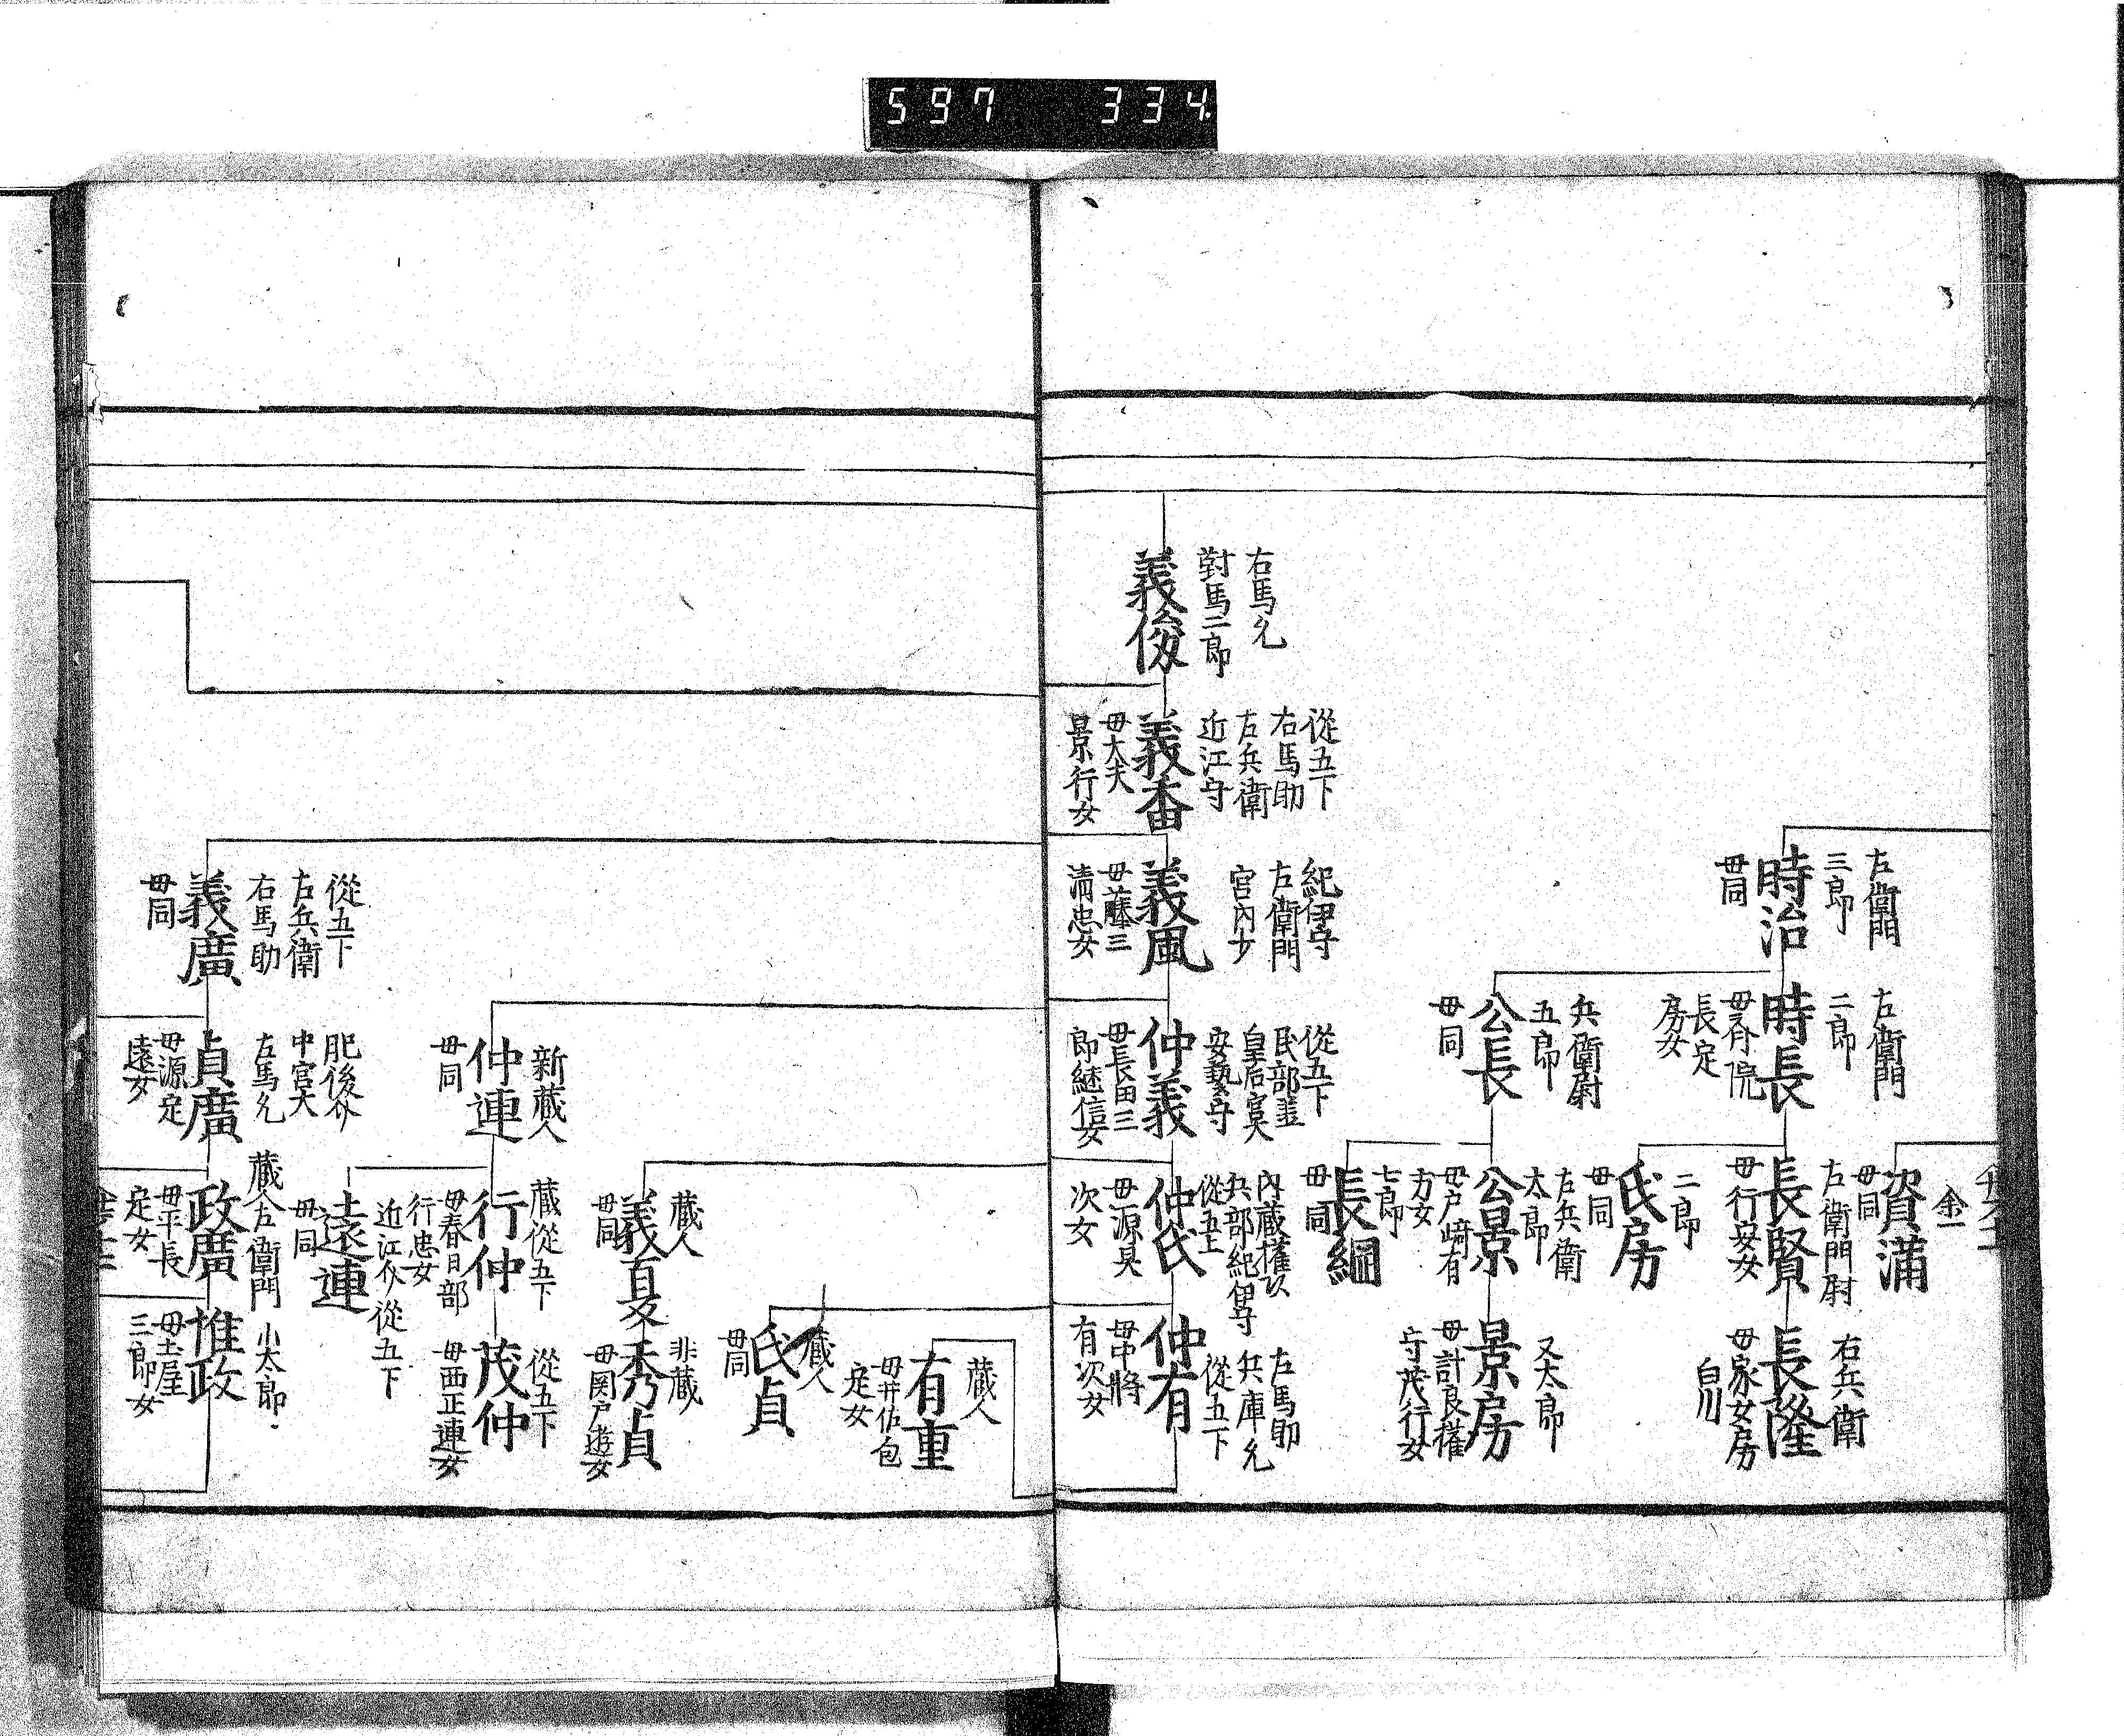 597 334.
左衛門
三郎
時治
母同
左衛門
二郎
時長
長定
房女
兵衛尉
五郎
公長
母同
資蒲
母同
左衛門尉
長賢
母行安女
右兵衛
長隆
母家女房
白川
二郎
氏房
母同
左兵衛
太郎
公景
母戸崎有
方女
又太郎
景房
母計良権
守茂行女
七郎
長綱
母同
右馬允
對馬二郎
義俊
從五下
右馬助
左兵衛
近江守
義番
母大夫
景行女
紀伊守
左衛門
宮内少
義風
母藤三
清忠女
從五下
皇后宮大
安藝守
仲義
母長田三
郎継信女
内藏權頭
兵部紀伊守
從五上
仲氏
母源具
次女
左馬助
兵庫允
從五下
仲有
母中將
有次女
藏人
有重
母井佐包
定女
藏人
氏貞
母同
藏人
義夏
母同
非藏
秀貞
母関戸遊女
新藏人
仲連
母同
藏從五下
行仲
母春日部
行忠女
從五下
茂仲
母西正連女
近江介從五下
遠連
母同
從五下
左兵衛
右馬助
義廣
母同
肥後介
中宮大
左馬允
貞廣
母源定
遠女
藏人左衛門
政廣
母平長
定女
小太郎
惟政
母土屋
三郎女